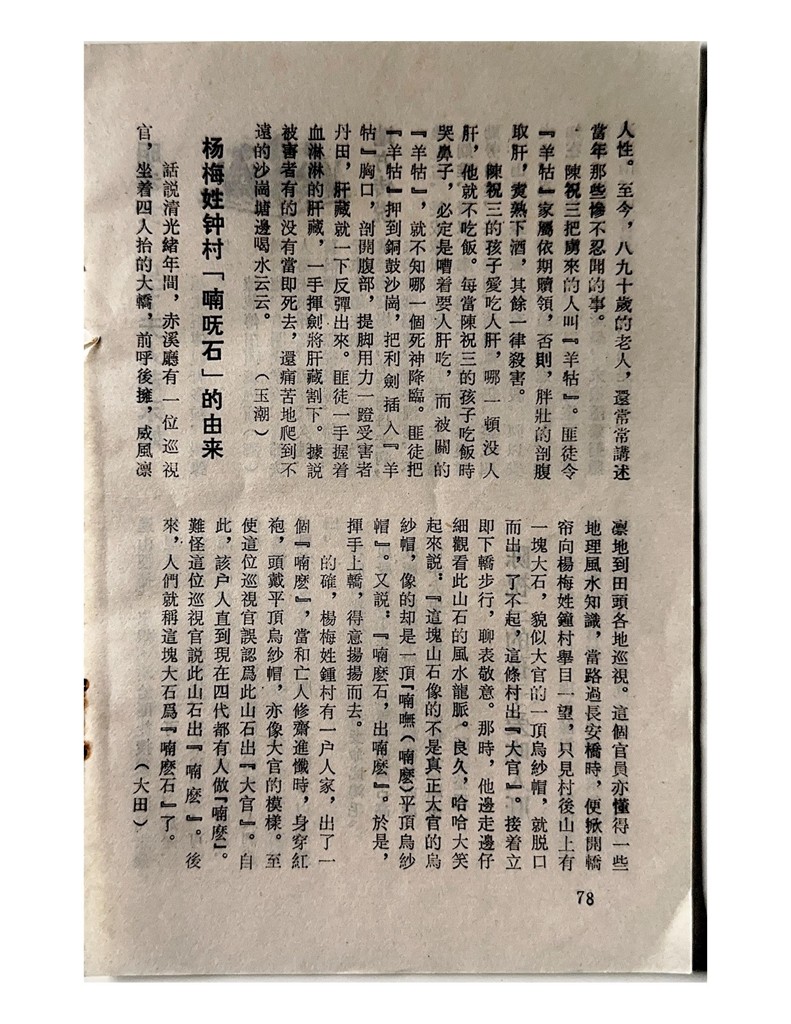 人性。至今，八九十歲的老人，還常常講述
當年那些慘不忍聞的事。
陳祝三把虜來的人叫『羊牯』。匪徒令
『羊牯』家屬依期贖領，否則，胖壯的剖腹
取肝，煑熟下酒，其餘一律殺害。
陳祝三的孩子愛吃人肝，哪一頓没人
肝，他就不吃飯。每當陳祝三的孩子吃飯時
哭鼻子，必定是嘈着要人肝吃，而被關的
『羊牯』，就不知哪一個死神降臨。匪徒把
『羊牯』押到銅鼓沙崗，把利劍插入『羊
牯』胸口，剖開腹部，提脚用力一蹬受害者
丹田，肝藏就一下反彈出來。匪徒一手握着
血淋淋的肝藏，一手揮劍將肝藏割下。據説
被害者有的没有當即死去，還痛苦地爬到不
遠的沙崗塘邊喝水云云。
（玉潮）
杨梅姓钟村「喃呒石」的由来
話説清光緒年間，赤溪廳有一位巡視
官，坐着四人抬的大轎，前呼後擁，威風凛
凛地到田頭各地巡視。這個官員亦懂得一些
地理風水知識，當路過長安橋時，便掀開轎
帘向楊梅姓鐘村舉目一望，只見村後山上有
一塊大石，貌似大官的一頂烏紗帽，就脱口
而出，了不起，這條村出『大官』。接着立
即下轎步行，聊表敬意。那時，他邊走邊仔
細觀看此山石的風水龍脈。良久，哈哈大笑
起來説，『這塊山石像的不是真正大官的烏
紗帽，像的却是一頂『喃嘸（喃麽）平頂烏紗
帽』。又説，『喃麽石，出喃麽』。於是，
揮手上轎，得意揚揚而去。
的確，楊梅姓鍾村有一户人家，出了一
個『喃麽』，當和亡人修齋進懺時，身穿紅
袍，頭戴平頂烏紗帽，亦像大官的模樣。至
使這位巡視官誤認爲此山石出『大官』。自
此，該户人直到現在四代都有人做『喃麽』。
難怪這位巡視官説此山石出『喃麽』。後
來，人們就稱這塊大石爲『喃麽石』了。
（大田）
78